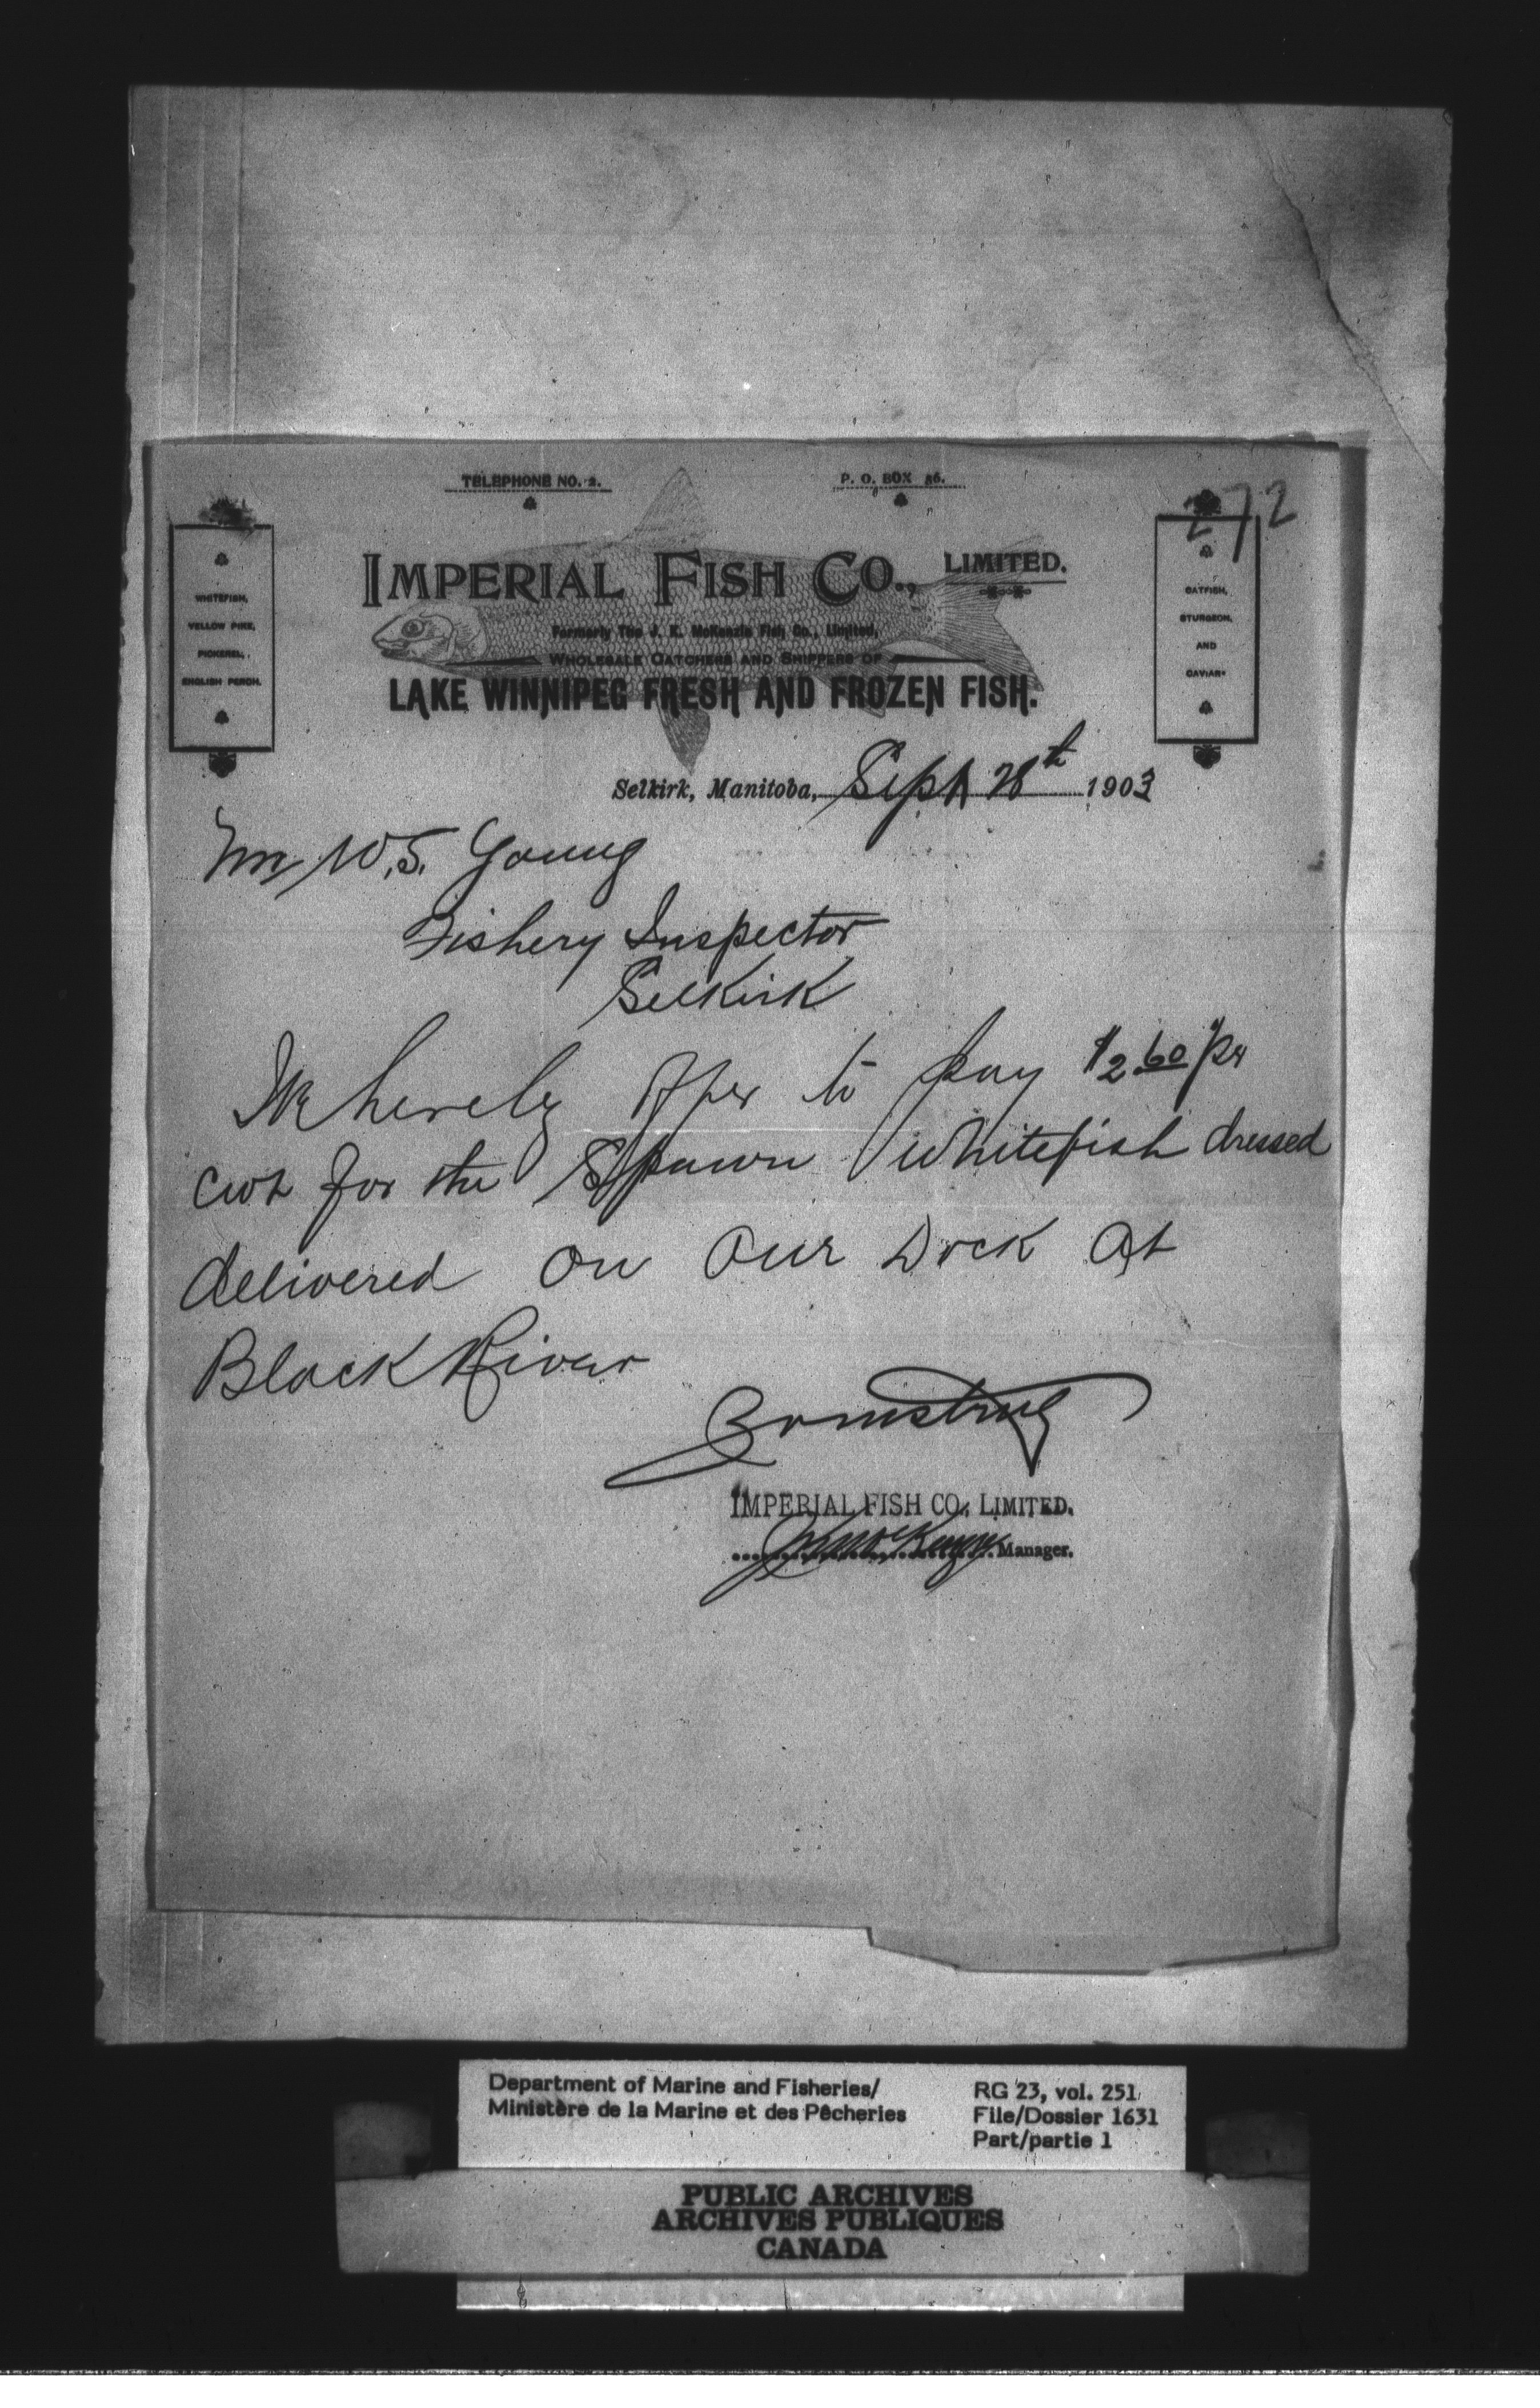 TELEPHONE NO. 2.
P. O. BOX 56.
272
IMPERIAL FISH CO., LIMITED.
Formerly The J. K. McKenzie Fish Co., Limited,
WHOLESALE CATCHERS AND SHIPPERS OF
LAKE WINNIPEG FRESH AND FROZEN FISH.
WHITEFISH,
YELLOW PIKE,
PICKEREL,
ENGLISH PERCH.
CATFISH,
STURGEON,
AND
CAVIAR.
Selkirk, Manitoba, Sept 28th 1903
Mr W.S. Young
Fishery Inspector
Selkirk
We hereby offer to pay $2.60 per
cwt for the Spawn Whitefish dressed
delivered on our Dock at
Black River
Yours truly
IMPERIAL FISH CO., LIMITED.
J K McKenzie Manager.
Department of Marine and Fisheries/
Ministère de la Marine et des Pêcheries
RG 23, vol. 251
File/Dossier 1631
Part/partie 1
PUBLIC ARCHIVES
ARCHIVES PUBLIQUES
CANADA